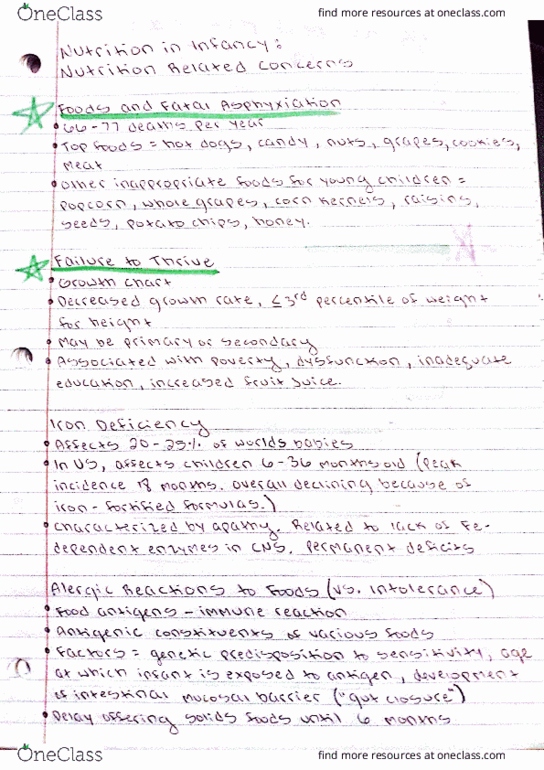 OneClass
find more resources at oneclass.com
Nutrition in Infancy:
Nutrition Related Concerns
Foods and Fatal Asphyxiation
66-77 deaths per year
Top foods = hot dogs, candy, nuts, grapes, cookies,
meat
Other inappropriate foods for young children =
popcorn, whole grapes, corn kernels, raisins,
seeds, potato chips, honey.
Failure to Thrive
Growth chart
Decreased growth rate, ≤3rd percentile of weight
for height
May be primary or secondary
Associated with poverty, dysfunction, inadequate
education, increased fruit juice.
Iron Deficiency
Affects 20-25% of worlds babies
In US, affects children 6-36 months old (peak
incidence 18 months. overall declining because of
iron-fortified formulas.)
Characterized by apathy. Related to lack of Fe-
dependent enzymes in CNS. permanent deficits
Allergic Reactions to Foods (vs. Intolerance)
Food antigens - immune reaction
Antigenic constituents of various foods
Factors = genetic predisposition to sensitivity, age
at which infant is exposed to antigen, development
of intestinal mucosal barrier ("gut closure")
Delay offering solids foods until 6 months
OneClass
find more resources at oneclass.com